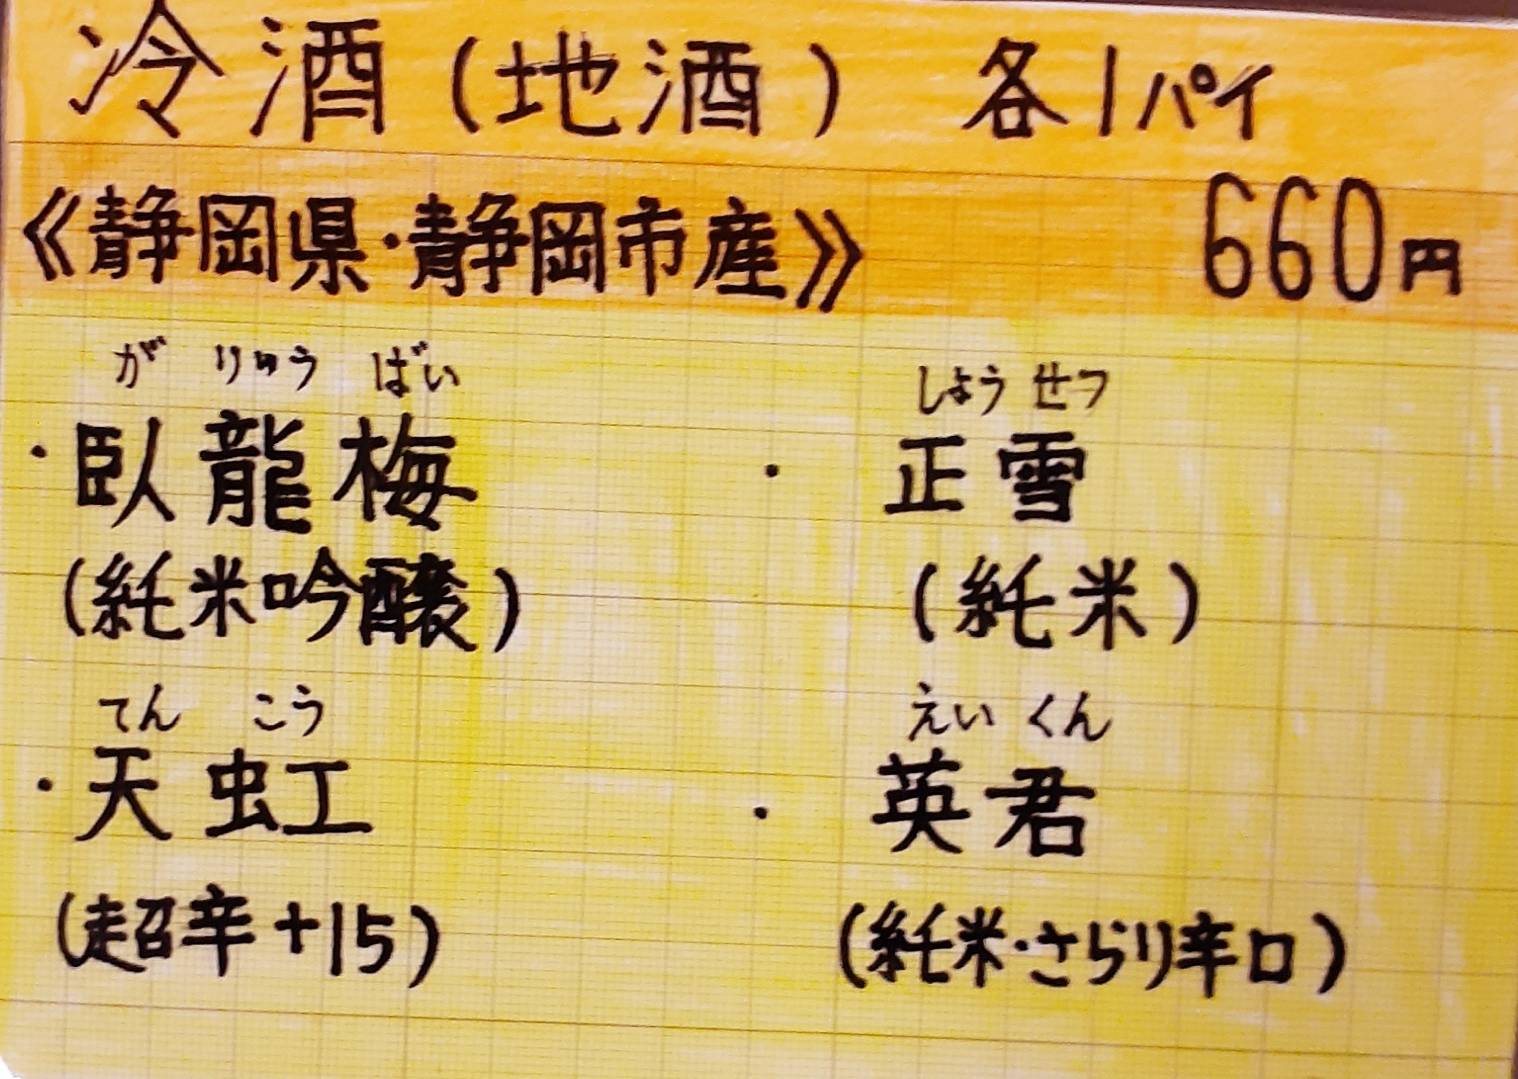 冷酒(地酒) 各1パイ
《静岡県・静岡市産》 660円
がりゅうばい
・臥龍梅
(純米吟醸)
しょうせつ
・正雪
(純米)
てんこう
・天虹
(超辛+15)
えいくん
・英君
(純米・さらり辛口)